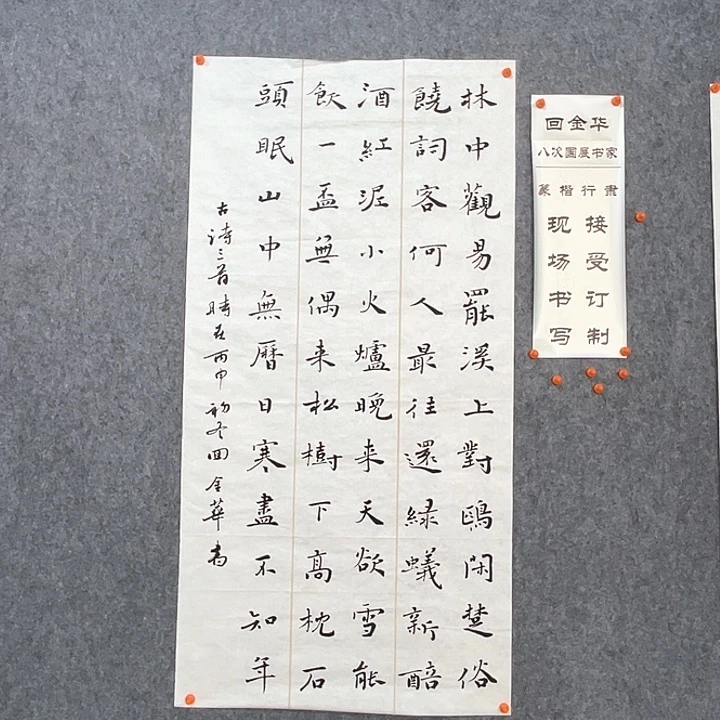 林中觀易罷溪上對鷗閑楚俗
饒詞客何人最往還綠蟻新醅
酒紅泥小火爐晚来天欲雪能
飲一盃無偶来松樹下高枕石
頭眠山中無曆日寒盡不知年
古诗三首時在丙申初冬回金華書
回金华
八次国展书家
篆楷行隶
接受订制
现场书写